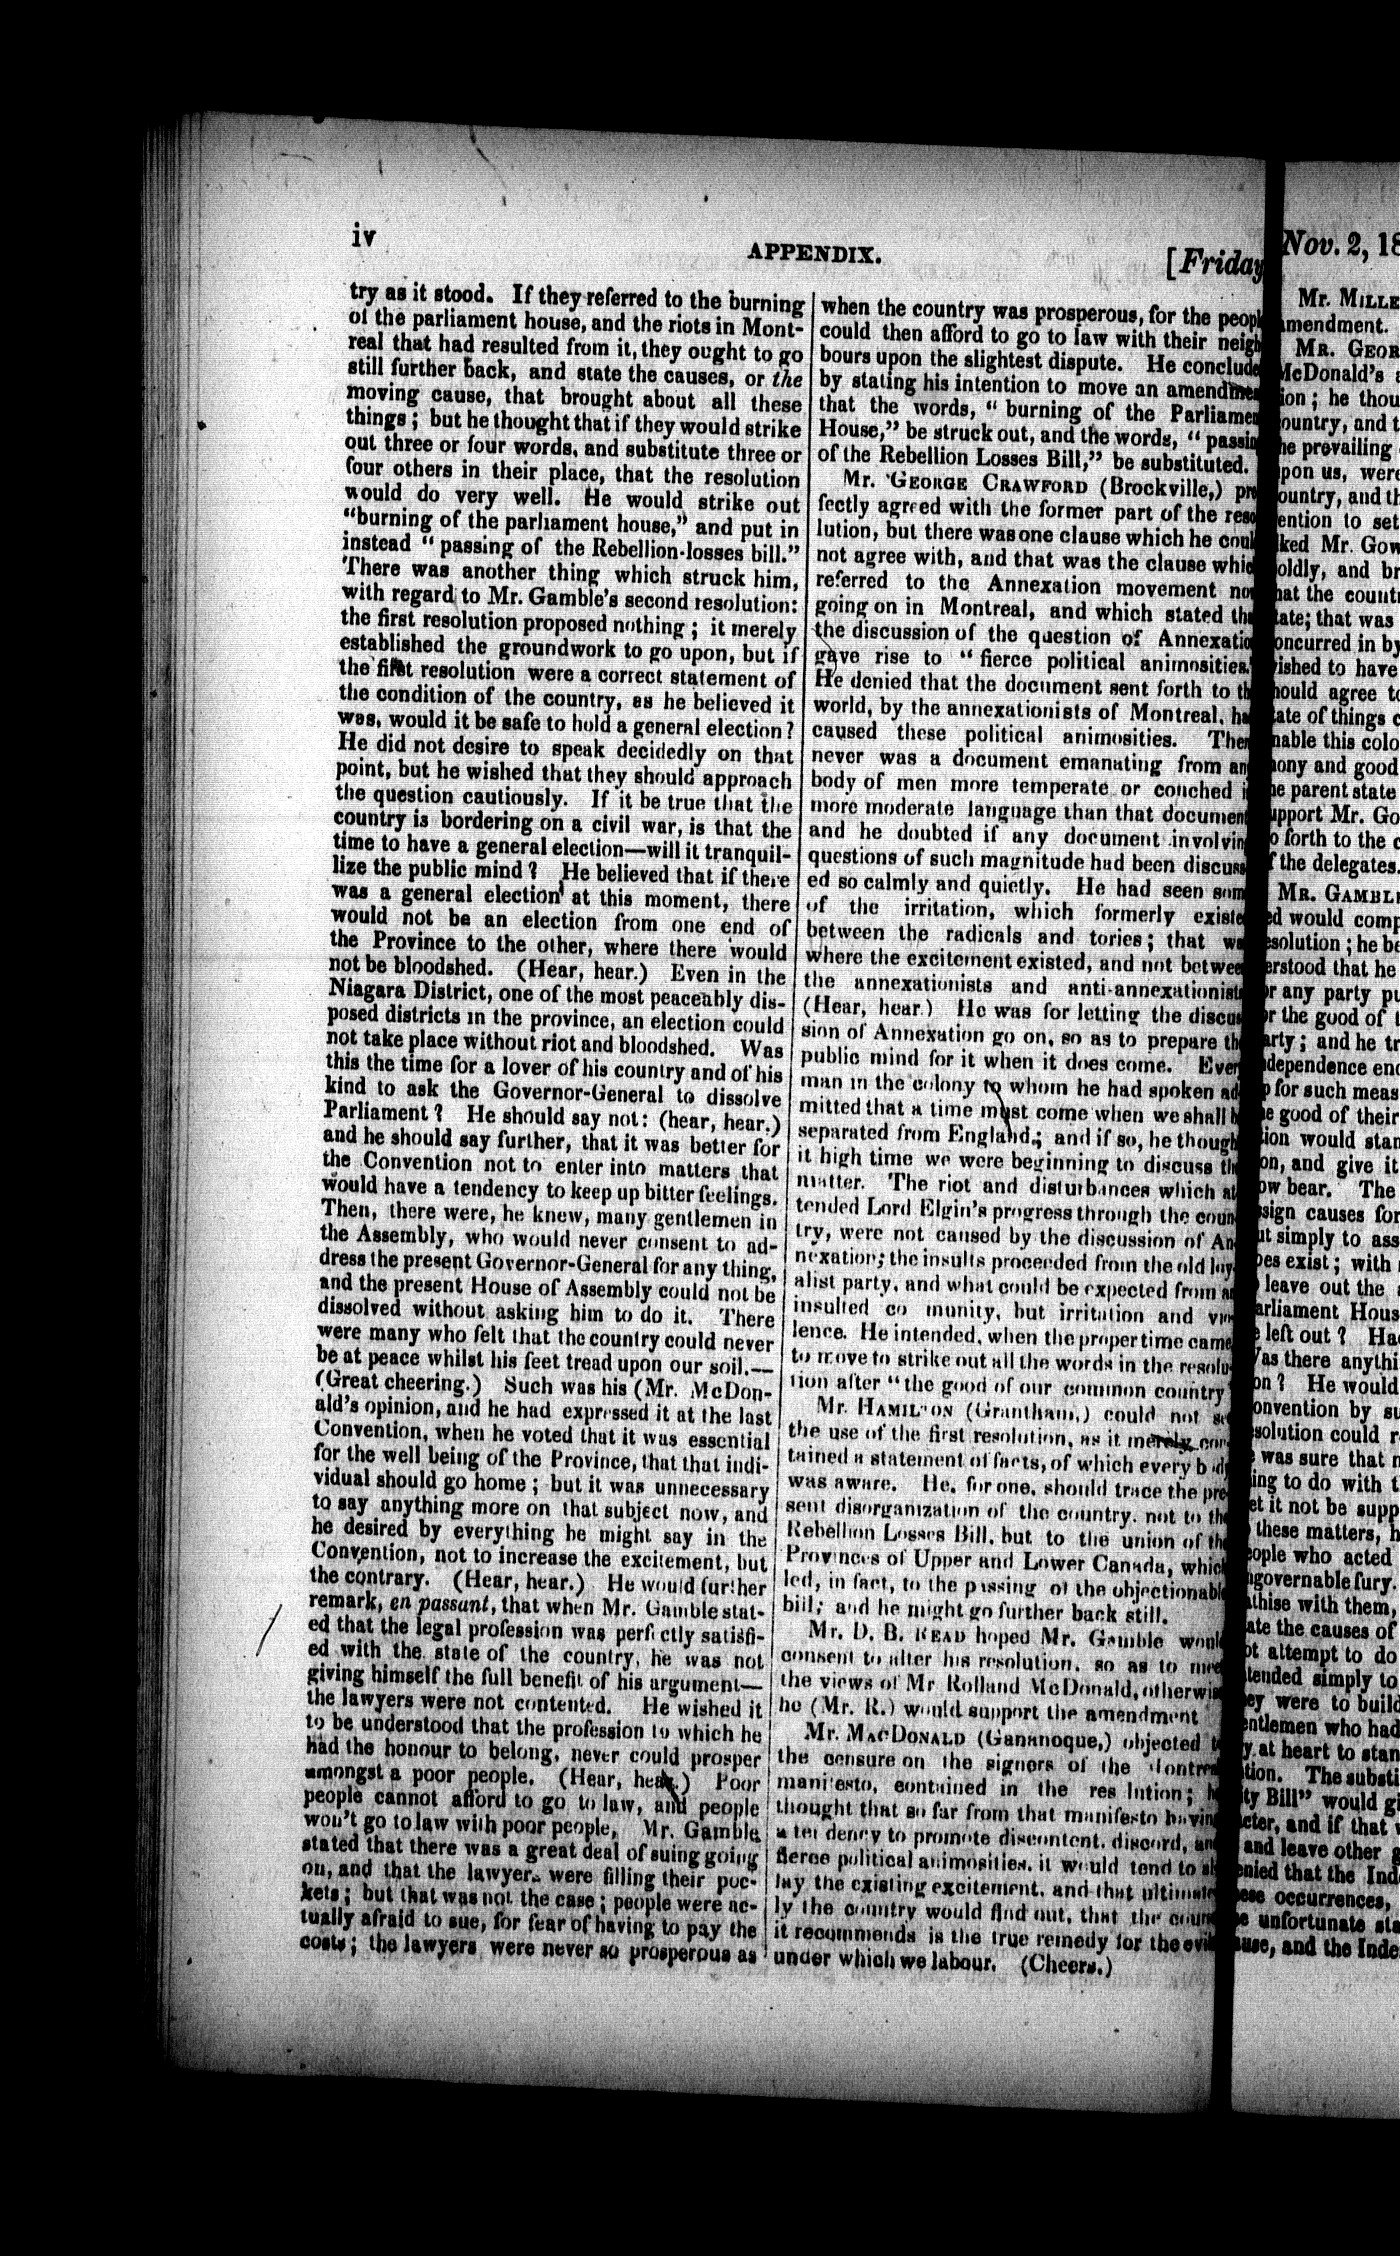 iv
APPENDIX.
[Friday
try as it stood. If they referred to the burning
of the parliament house, and the riots in Mont-
real that had resulted from it, they ought to go
still further back, and state the causes, or the
moving cause, that brought about all these
things; but he thought that if they would strike
out three or four words, and substitute three or
four others in their place, that the resolution
would do very well. He would strike out
"burning of the parliament house," and put in
instead "passing of the Rebellion-losses bill."
There was another thing which struck him,
with regard to Mr. Gamble's second resolution:
the first resolution proposed nothing; it merely
established the groundwork to go upon, but if
the first resolution were a correct statement of
the condition of the country, as he believed it
was, would it be safe to hold a general election?
He did not desire to speak decidedly on that
point, but he wished that they should approach
the question cautiously. If it be true that the
country is bordering on a civil war, is that the
time to have a general election—will it tranquil-
lize the public mind? He believed that if there
was a general election at this moment, there
would not be an election from one end of
the Province to the other, where there would
not be bloodshed. (Hear, hear.) Even in the
Niagara District, one of the most peaceably dis-
posed districts in the province, an election could
not take place without riot and bloodshed. Was
this the time for a lover of his country and of his
kind to ask the Governor-General to dissolve
Parliament? He should say not: (hear, hear.)
and he should say further, that it was better for
the Convention not to enter into matters that
would have a tendency to keep up bitter feelings.
Then, there were, he knew, many gentlemen in
the Assembly, who would never consent to ad-
dress the present Governor-General for any thing,
and the present House of Assembly could not be
dissolved without asking him to do it. There
were many who felt that the country could never
be at peace whilst his feet tread upon our soil.—
(Great cheering.) Such was his (Mr. McDon-
ald's opinion, and he had expressed it at the last
Convention, when he voted that it was essential
for the well being of the Province, that that indi-
vidual should go home; but it was unnecessary
to say anything more on that subject now, and
he desired by everything he might say in the
Convention, not to increase the excitement, but
the contrary. (Hear, hear.) He would further
remark, en passant, that when Mr. Gamble stat-
ed that the legal profession was perfectly satisfi-
ed with the state of the country, he was not
giving himself the full benefit of his argument—
the lawyers were not contented. He wished it
to be understood that the profession to which he
had the honour to belong, never could prosper
amongst a poor people. (Hear, hear.) Poor
people cannot afford to go to law, and people
won't go to law with poor people, Mr. Gamble
stated that there was a great deal of suing going
on, and that the lawyers were filling their poc-
kets; but that was not the case; people were ac-
tually afraid to sue, for fear of having to pay the
costs; the lawyers were never so prosperous as
when the country was prosperous, for the peopl
could then afford to go to law with their neigh
bours upon the slightest dispute. He conclude
by stating his intention to move an amendmen
that the words, "burning of the Parliamen
House," be struck out, and the words, "passin
of the Rebellion Losses Bill," be substituted.
Mr. GEORGE CRAWFORD (Brockville,) pe
fectly agreed with the former part of the reso
lution, but there was one clause which he coul
not agree with, and that was the clause whic
referred to the Annexation movement now
going on in Montreal, and which stated tha
the discussion of the question of Annexatio
gave rise to "fierce political animosities."
He denied that the document sent forth to th
world, by the annexationists of Montreal, ha
caused these political animosities. Ther
never was a document emanating from an
body of men more temperate or couched i
more moderate language than that document
and he doubted if any document involvin
questions of such magnitude had been discuss
ed so calmly and quietly. He had seen som
of the irritation, which formerly existe
between the radicals and tories; that wa
where the excitement existed, and not betwee
the annexationists and anti-annexationists
(Hear, hear.) He was for letting the discus
sion of Annexation go on, so as to prepare th
public mind for it when it does come. Ever
man in the colony to whom he had spoken ad
mitted that a time must come when we shall b
separated from England; and if so, he though
it high time we were beginning to discuss th
matter. The riot and disturbances which at
tended Lord Elgin's progress through the coun
try, were not caused by the discussion of An
nexation; the insults proceeded from the old loy
alist party, and what could be expected from an
insulted co munity, but irritation and vio
lence. He intended, when the proper time came
to move to strike out all the words in the resolu
tion after "the good of our common country
Mr. HAMILTON (Grantham,) could not see
the use of the first resolution, as it merely con
tained a statement of facts, of which every body
was aware. He, for one, should trace the pre
sent disorganization of the country, not to the
Rebellion Losses Bill, but to the union of the
Provinces of Upper and Lower Canada, which
led, in fact, to the passing of the objectionable
bill; and he might go further back still.
Mr. D. B. READ hoped Mr. Gamble would
consent to alter his resolution, so as to meet
the views of Mr Rolland McDonald, otherwise
he (Mr. R.) would support the amendment
Mr. MACDONALD (Gananoque,) objected t
the censure on the signers of the Montrea
manifesto, contained in the res lution; h
thought that so far from that manifesto having
a tendency to promote discontent, discord, an
fierce political animosities, it would tend to al
lay the existing excitement, and that ultimate
ly the country would find out, that the cours
it recommends is the true remedy for the evil
under which we labour. (Cheers.)
Nov. 2, 18
Mr. MILLE
mendment.
MR. GEOR
McDonald's a
ion; he thou
ountry, and t
he prevailing
pon us, were
ountry, and th
ention to set
ked Mr. Gow
oldly, and br
hat the countr
tate; that was
oncurred in by
ished to have
hould agree to
ate of things c
nable this colo
ony and good
he parent state
upport Mr. Go
o forth to the c
f the delegates.
MR. GAMBLE
ed would comp
esolution; he be
erstood that he
or any party pu
or the good of t
arty; and he tr
dependence enc
p for such meas
he good of their
tion would stan
on, and give it
ow bear. The
ssign causes for
ut simply to ass
oes exist; with
leave out the
arliament Hous
e left out? Ha
as there anythi
on? He would
onvention by su
solution could r
was sure that n
ing to do with t
et it not be supp
these matters, h
eople who acted
ngovernable fury.
thise with them,
ate the causes of
ot attempt to do
tended simply to
ey were to build
entlemen who had
y at heart to stan
tion. The substi
ty Bill" would gi
cter, and if that w
and leave other g
enied that the Ind
ese occurrences,
e unfortunate sta
use, and the Inde